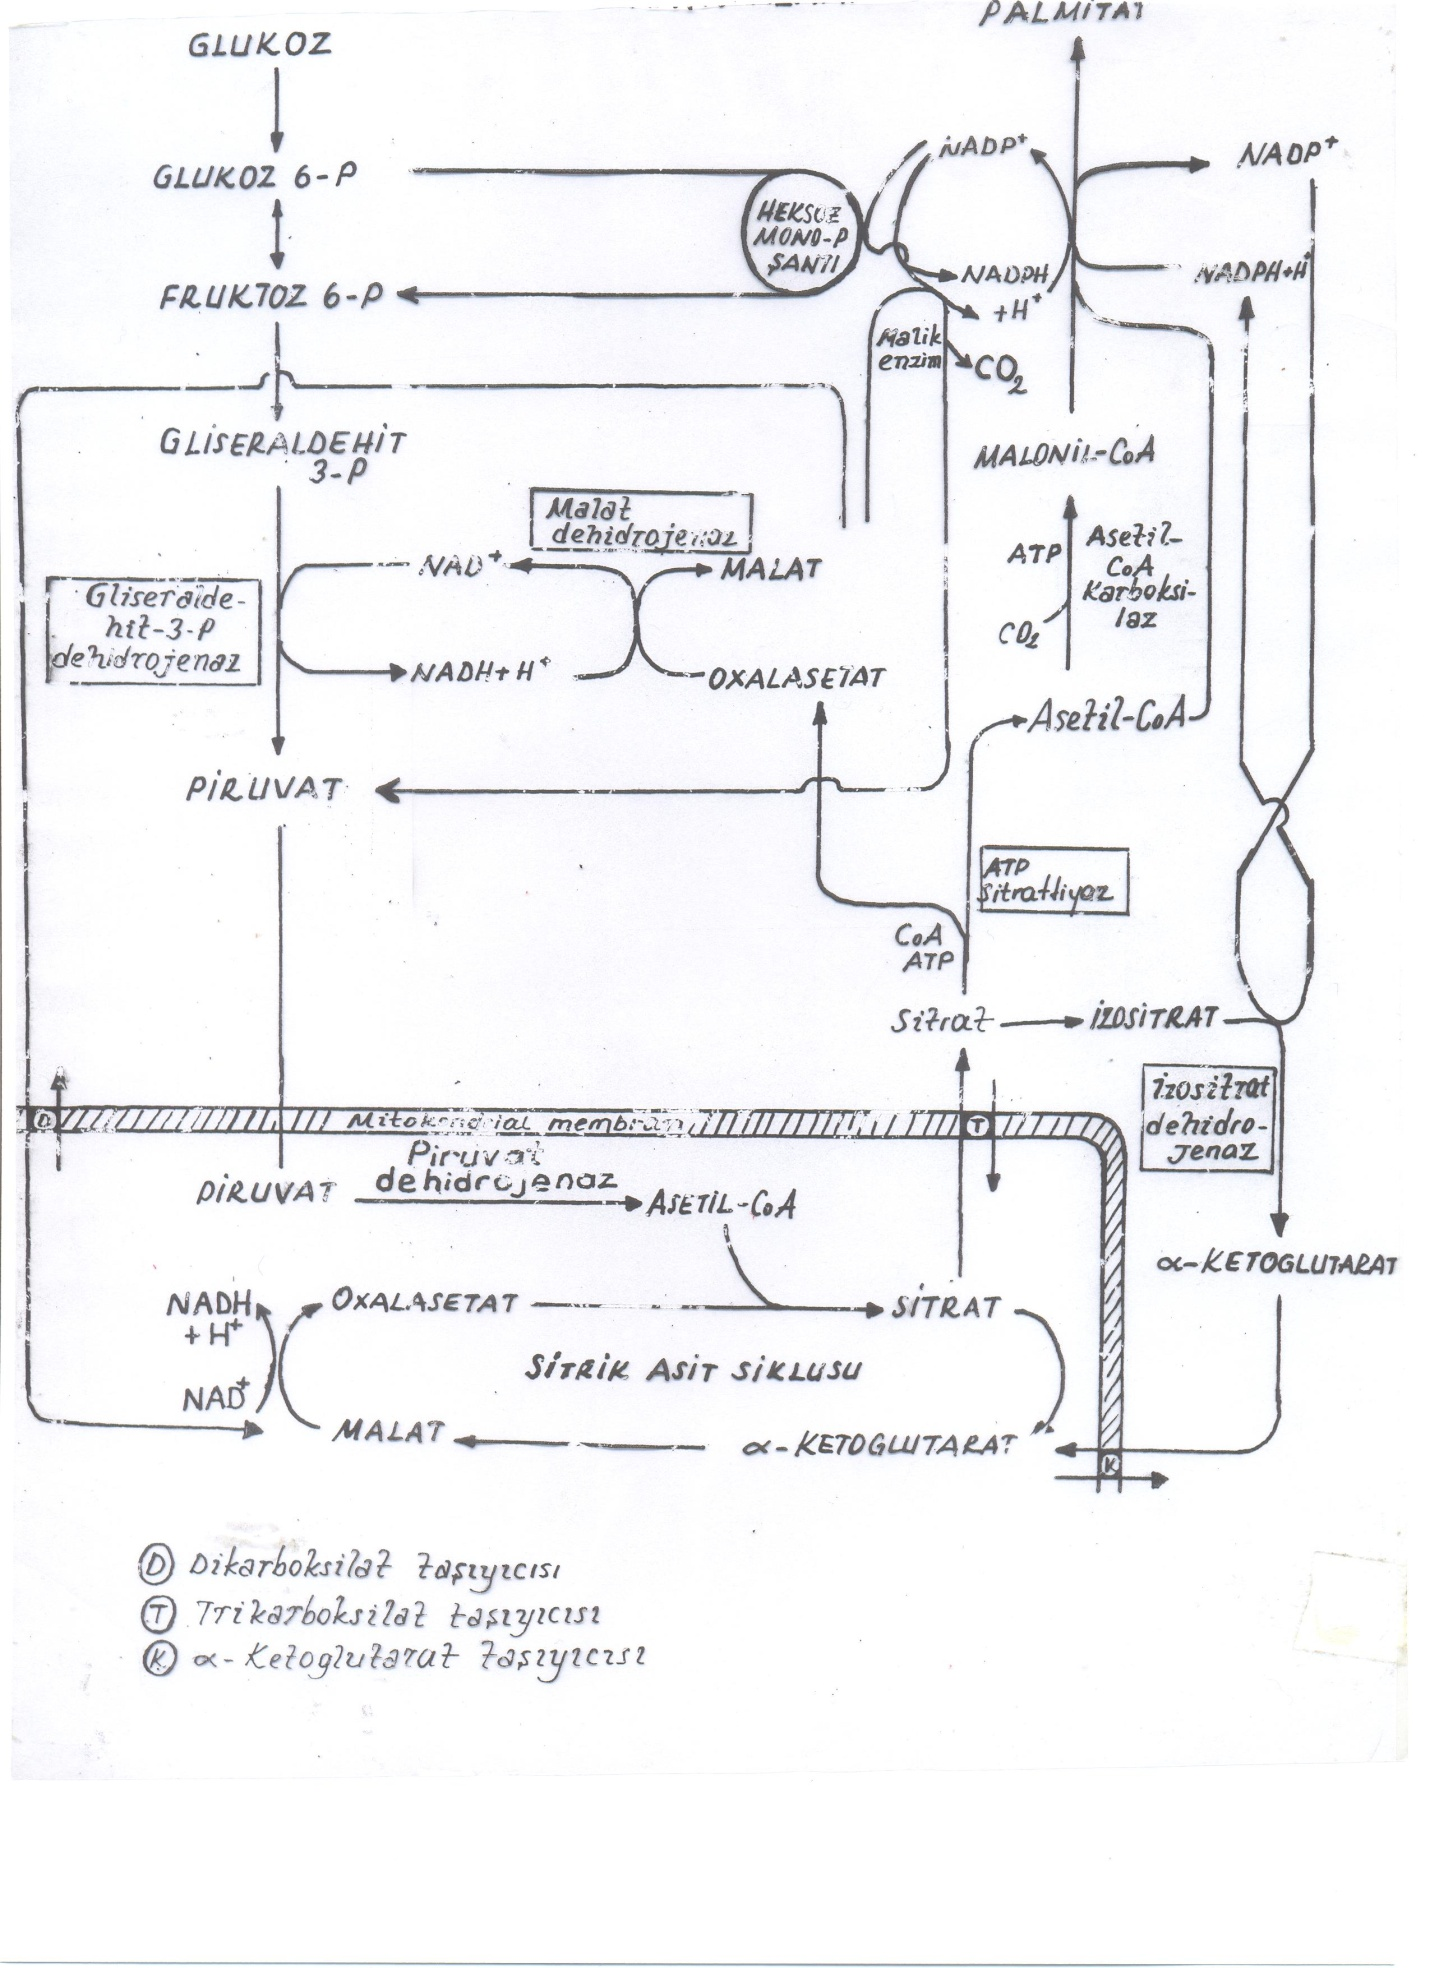 PALMİTAT
GLUKOZ
NADP⁺
NADP⁺
GLUKOZ 6-P
HEKSOZ
MONO-P
ŞANTI
NADPH
+H⁺
NADPH+H⁺
FRUKTOZ 6-P
Malik
enzim
CO₂
GLİSERALDEHİT
3-P
MALONİL-CoA
Malat
dehidrojenaz
ATP
Asetil-
CoA
Karboksi-
laz
CO₂
NAD⁺
MALAT
Gliseralde-
hit-3-P
dehidrojenaz
NADH+H⁺
OXALASETAT
Asetil-CoA
PİRUVAT
ATP
Sitratliyaz
CoA
ATP
Sitrat
İZOSİTRAT
İzositrat
dehidro-
jenaz
D
Mitokondrial membran
T
Piruvat
dehidrojenaz
PİRUVAT
ASETİL-CoA
α-KETOGLUTARAT
NADH
+H⁺
OXALASETAT
SİTRAT
SİTRİK ASİT SİKLUSU
NAD⁺
MALAT
α-KETOGLUTARAT
K
D Dikarboksilat taşıyıcısı
T Trikarboksilat taşıyıcısı
K α-Ketoglutarat taşıyıcısı